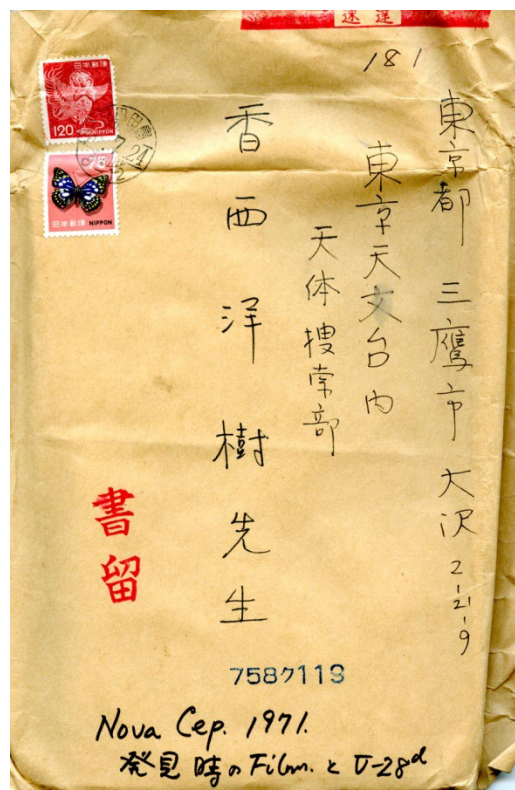 速達
181
東京都 三鷹市 大沢 2-21-9
東京天文台内
天体捜索部
香西洋樹先生
書留
日本郵便
120 NIPPON
75
日本郵便 NIPPON
7587119
Nova Cep. 1971.
発見時のFilm. と U-28d